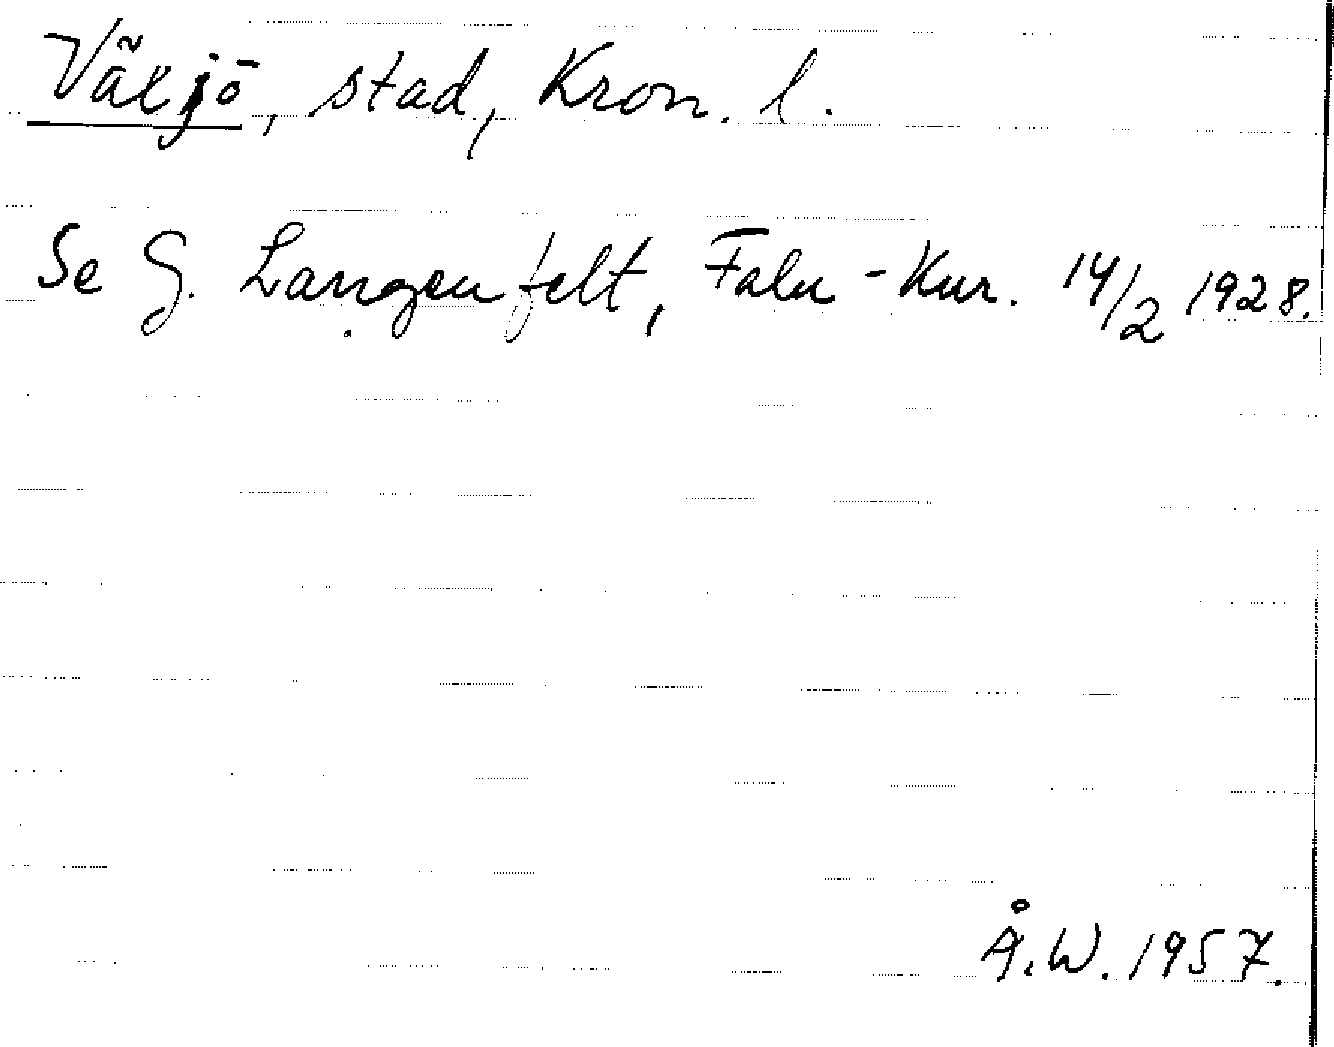 Växjö, stad, Kron. l.
Se G. Langenfelt, Falu-Kur. 14/2 1928.
Å.W. 1957.